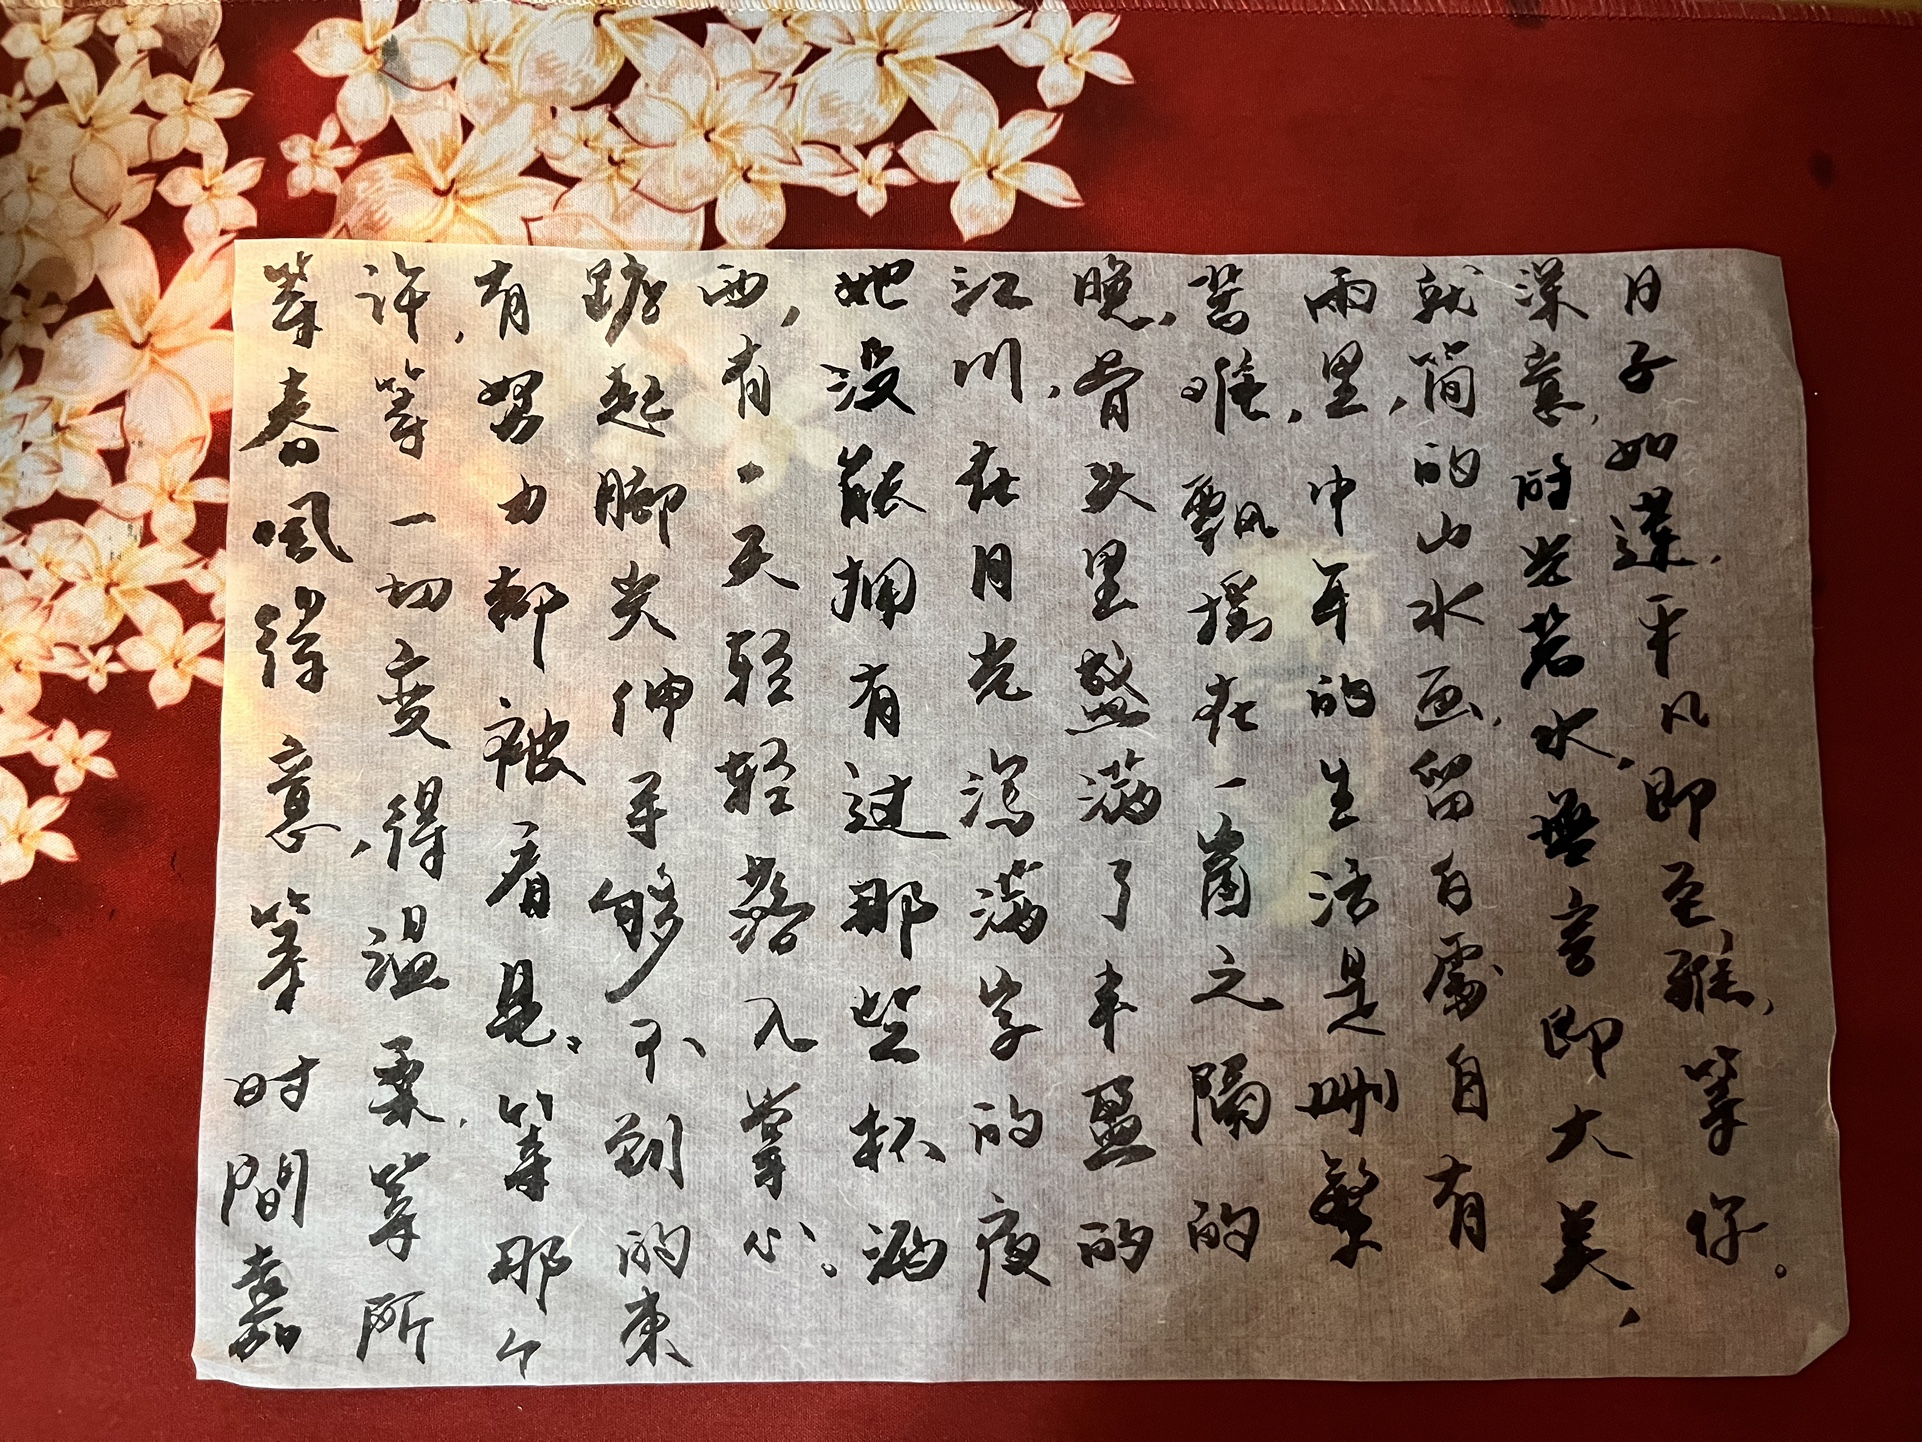 等春風得意，等时間嘉
许，等一切变得温柔，等所
有努力都被看见。等那个
踮起脚尖伸手够不到的東
西，有一天轻轻落入掌心。
她没能拥有过那些杯酒
江川，在月光泻满字的夜
晚，骨头里盛满了丰盈的
苦难，飘摇在一窗之隔的
雨里，中年的生活是删繁
就简的山水画，留白處自有
深意，时光若水，無言即大美，
日子如莲，平凡即至雅，等你。